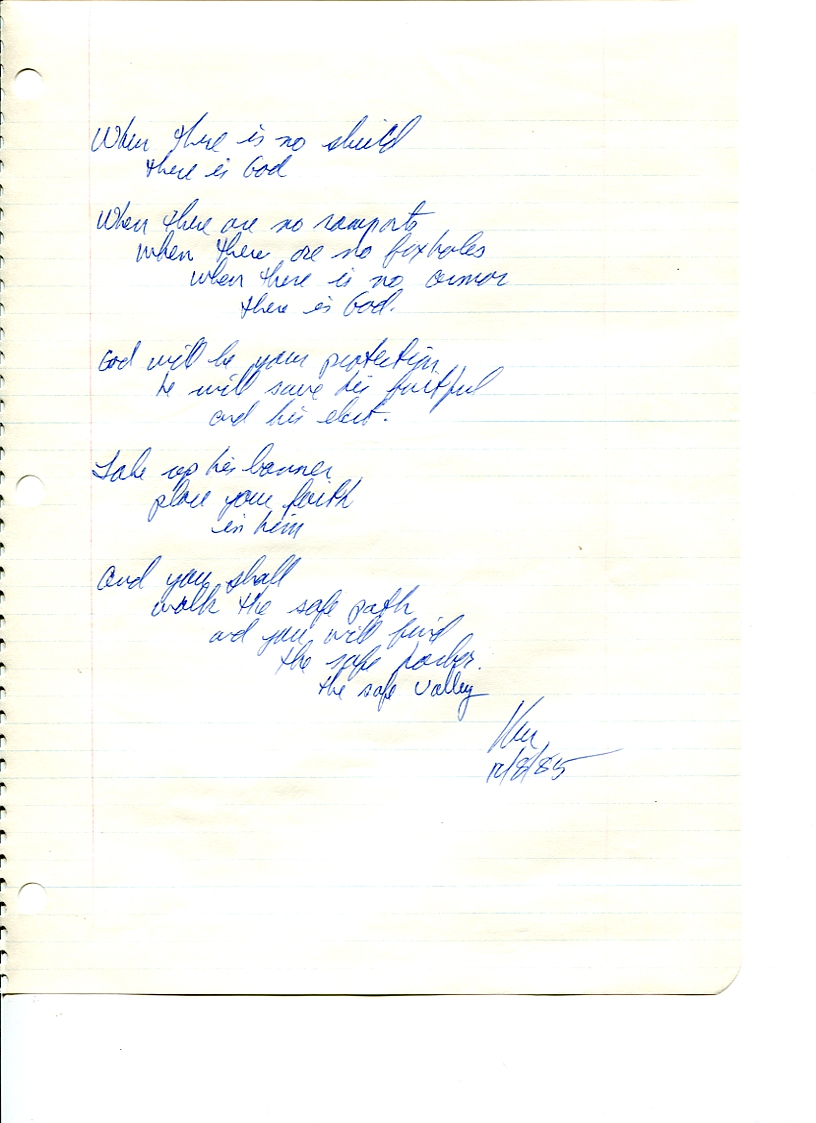 When there is no shield
there is God
When there are no ramparts
when there are no foxholes
when there is no armor
there is God.
God will be your protection
he will save his faithful
and his elect.
Take up his banner
place your faith
in him
and you shall
walk the safe path
and you will find
the safe harbor.
the safe valley
Ken
12/8/85